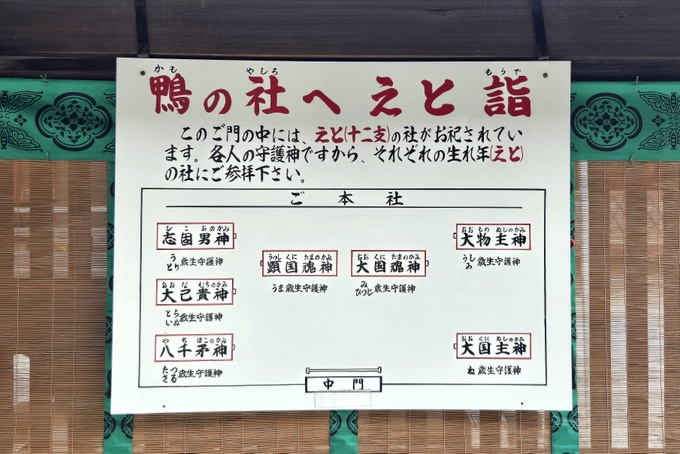 鴨の社へえと詣
かも やしろ もうで
このご門の中には、えと(十二支)の社がお祀されてい
ます。各人の守護神ですから、それぞれの生れ年(えと)
の社にご参拝下さい。
ご本社
しこおのかみ
志固男神
う とり歳生守護神
おおなむちのかみ
大己貴神
とら いぬ歳生守護神
やちほこのかみ
八千矛神
たつ さる歳生守護神
うつしくにたまのかみ
顕国魂神
うま歳生守護神
おおくにたまのかみ
大国魂神
み ひつじ歳生守護神
おおものぬしのかみ
大物主神
うし ゐ歳生守護神
おおくにぬしのかみ
大国主神
ね歳生守護神
中門